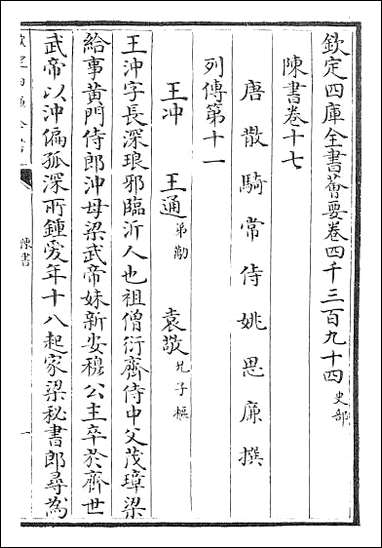 欽定四庫全書薈要卷四千三百九十四 史部
陳書卷十七
唐散騎常侍姚思廉撰
列傳第十一
王沖 王通 弟勱 袁敬 兄子樞
王沖字長深琅邪臨沂人也祖僧衍齊侍中父茂璋梁
給事黃門侍郎沖母梁武帝妹新安穆公主卒於齊世
武帝以沖偏孤深所鍾愛年十八起家梁秘書郎尋為
陳書
一